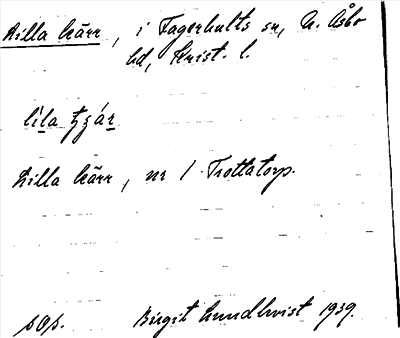 Lilla kärr, i Fagerhults sn, N. Åsbo
hd, Krist. l.
líla tzǽr
Lilla kärr, nr 1 Trottatorp.
sOp. Birgit Lundkvist 1939.